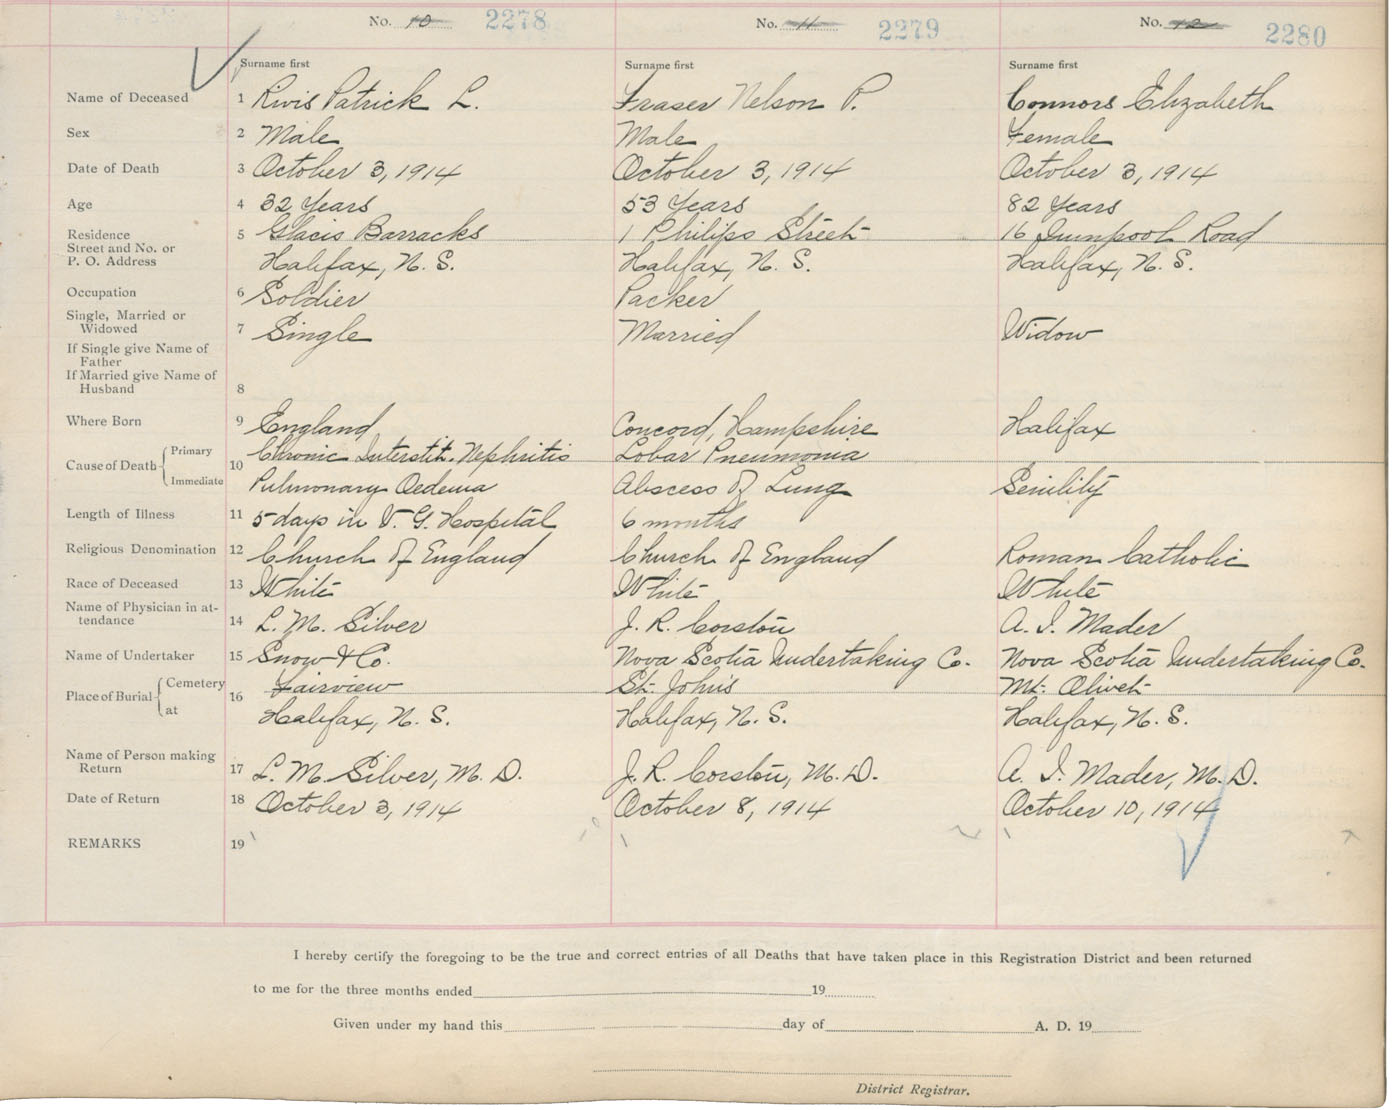 No. 10 2278 No. 11 2279 No. 12 2280
Surname first Surname first Surname first
Name of Deceased 1 Rivis Patrick L. Fraser Nelson P. Connors Elizabeth
Sex 2 Male Male Female
Date of Death 3 October 3, 1914 October 3, 1914 October 3, 1914
Age 4 32 Years 53 Years 82 Years
Residence 5 Glacis Barracks 1 Philips Street 16 Road
Street and No. or
P. O. Address Halifax, N. S. Halifax, N. S. Halifax, N. S.
Occupation 6 Soldier Packer
Single, Married or
Widowed 7 Single Married Widow
If Single give Name of
Father
If Married give Name of
Husband 8
Where Born 9 England Concord, Hampshire Halifax
Cause of Death Primary 10 Chronic Interstit. Nephritis Lobar Pneumonia
Immediate Pulmonary Oedema Abscess of Lung Senility
Length of Illness 11 5 days in V. G. Hospital 6 months
Religious Denomination 12 Church of England Church of England Roman Catholic
Race of Deceased 13 White White White
Name of Physician in at-
tendance 14 L. M. Silver J. R. Corston A. I. Mader
Name of Undertaker 15 Snow & Co. Nova Scotia Undertaking Co. Nova Scotia Undertaking Co.
Place of Burial Cemetery 16 Fairview St. John's Mt. Olivet
at Halifax, N. S. Halifax, N. S. Halifax, N. S.
Name of Person making
Return 17 L. M. Silver, M. D. J. R. Corston, M. D. A. I. Mader, M. D.
Date of Return 18 October 3, 1914 October 8, 1914 October 10, 1914
REMARKS 19
I hereby certify the foregoing to be the true and correct entries of all Deaths that have taken place in this Registration District and been returned
to me for the three months ended 19
Given under my hand this day of A. D. 19
District Registrar.